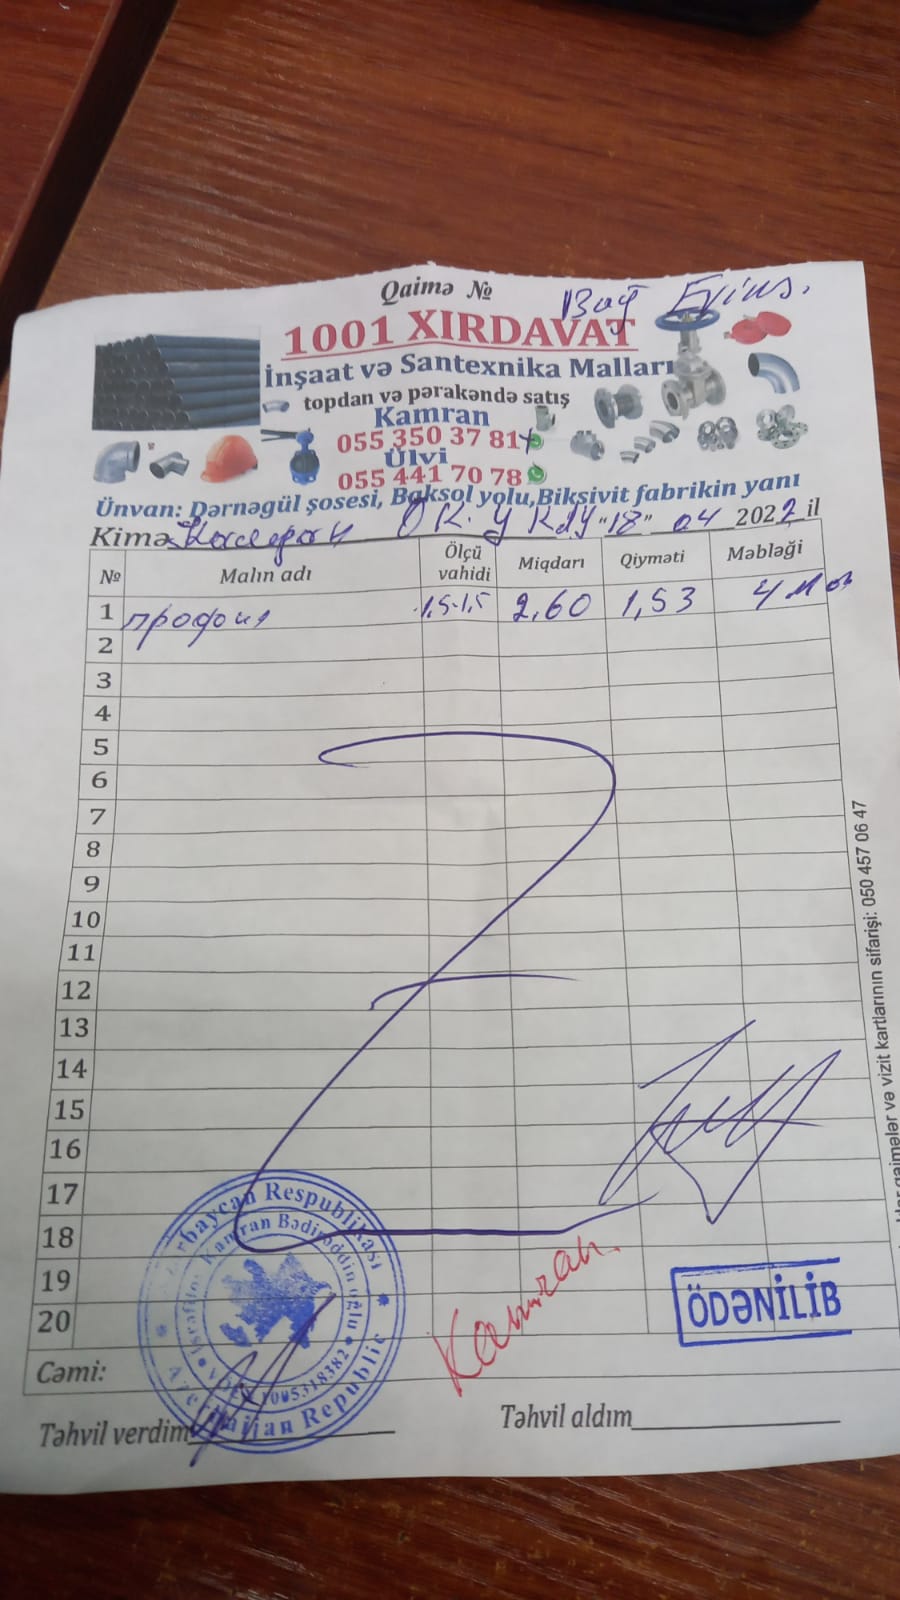 Qaimə №
Bağ
1001 XIRDAVAT
İnşaat və Santexnika Malları
topdan və pərakəndə satış
Kamran
055 350 37 81
Ülvi
055 441 70 78
Ünvan: Dərnəgül şosesi, Baksol yolu, Biksivit fabrikin yanı
Kimə "18" 04 2022 il
№ Malın adı Ölçü vahidi Miqdarı Qiyməti Məbləği
1 профил 1,5·1,5 2,60 1,53 4 ман
2
3
4
5
6
7
8
9
10
11
12
13
14
15
16
17
18
19
20
Cəmi:
Azərbaycan Respublikası
İsrafilov Kamran Bədirəddin oğlu
VÖEN 1005318382
Azerbaijan Republic
Kamran
ÖDƏNİLİB
Təhvil verdim Təhvil aldım
qaimələr və vizit kartlarının sifarişi: 050 457 06 47